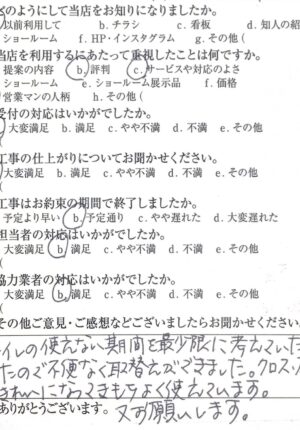 どのようにして当店をお知りになりましたか。
以前利用して b. チラシ c. 看板 d. 知人の紹
ショールーム f. HP・インスタグラム g. その他(
当店を利用するにあたって重視したことは何ですか。
提案の内容 b. 評判 c. サービスや対応のよさ
ショールーム e. ショールーム展示品 f. 価格
営業マンの人柄 h. その他(
受付の対応はいかがでしたか。
大変満足 b. 満足 c. やや不満 d. 不満 e. その他
(
工事の仕上がりについてお聞かせください。
大変満足 b. 満足 c. やや不満 d. 不満 e. その他
(
工事はお約束の期間で終了しましたか。
予定より早い b. 予定通り c. やや遅れた d. 大変遅れた
担当者の対応はいかがでしたか。
大変満足 b. 満足 c. やや不満 d. 不満 e. その他
(
協力業者の対応はいかがでしたか。
大変満足 b. 満足 c. やや不満 d. 不満 e. その他
(
その他ご意見・ご感想などございましたらお聞かせください
イレの使えない期間を最少限に考えていた
たので不便なく取替えができました。クロス
きれいになってきもちよく使えています。
ありがとうございます。 又お願いします。